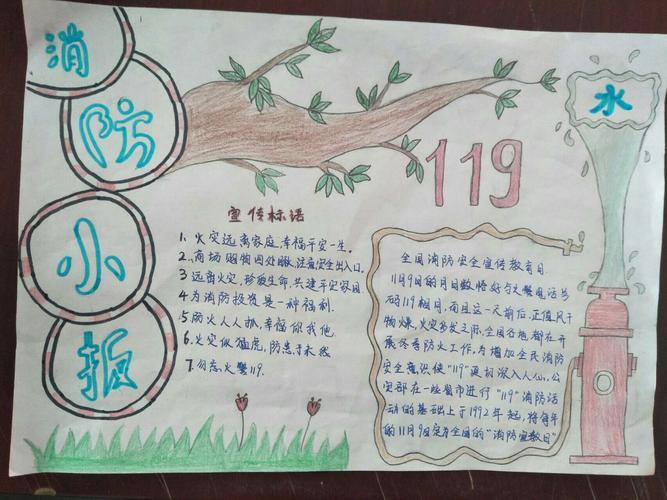 消
防
小
报
119
水
宣传标语
1、火灾远离家庭,幸福平安一生。
2、商场购物四处瞅,注意安全出入口.
3、远离火灾,珍爱生命,共建平安家园.
4、为消防投资是一种福利.
5、防火人人抓,幸福你我他.
6、火灾似猛虎,防患于未然
7、勿忘火警119.
全国消防安全宣传教育日.
11月9日的月日数恰好与火警电话号
码119相同,而且这一天前后,正值风干
物燥,火灾多发之际,全国各地都在开
展冬季防火工作,为增加全民消防
安全意识使"119"更加深入人心,公
安部在一些省市进行"119"消防活
动的基础上于1992年起,将每年
的11月9日定为全国的"消防宣教日"